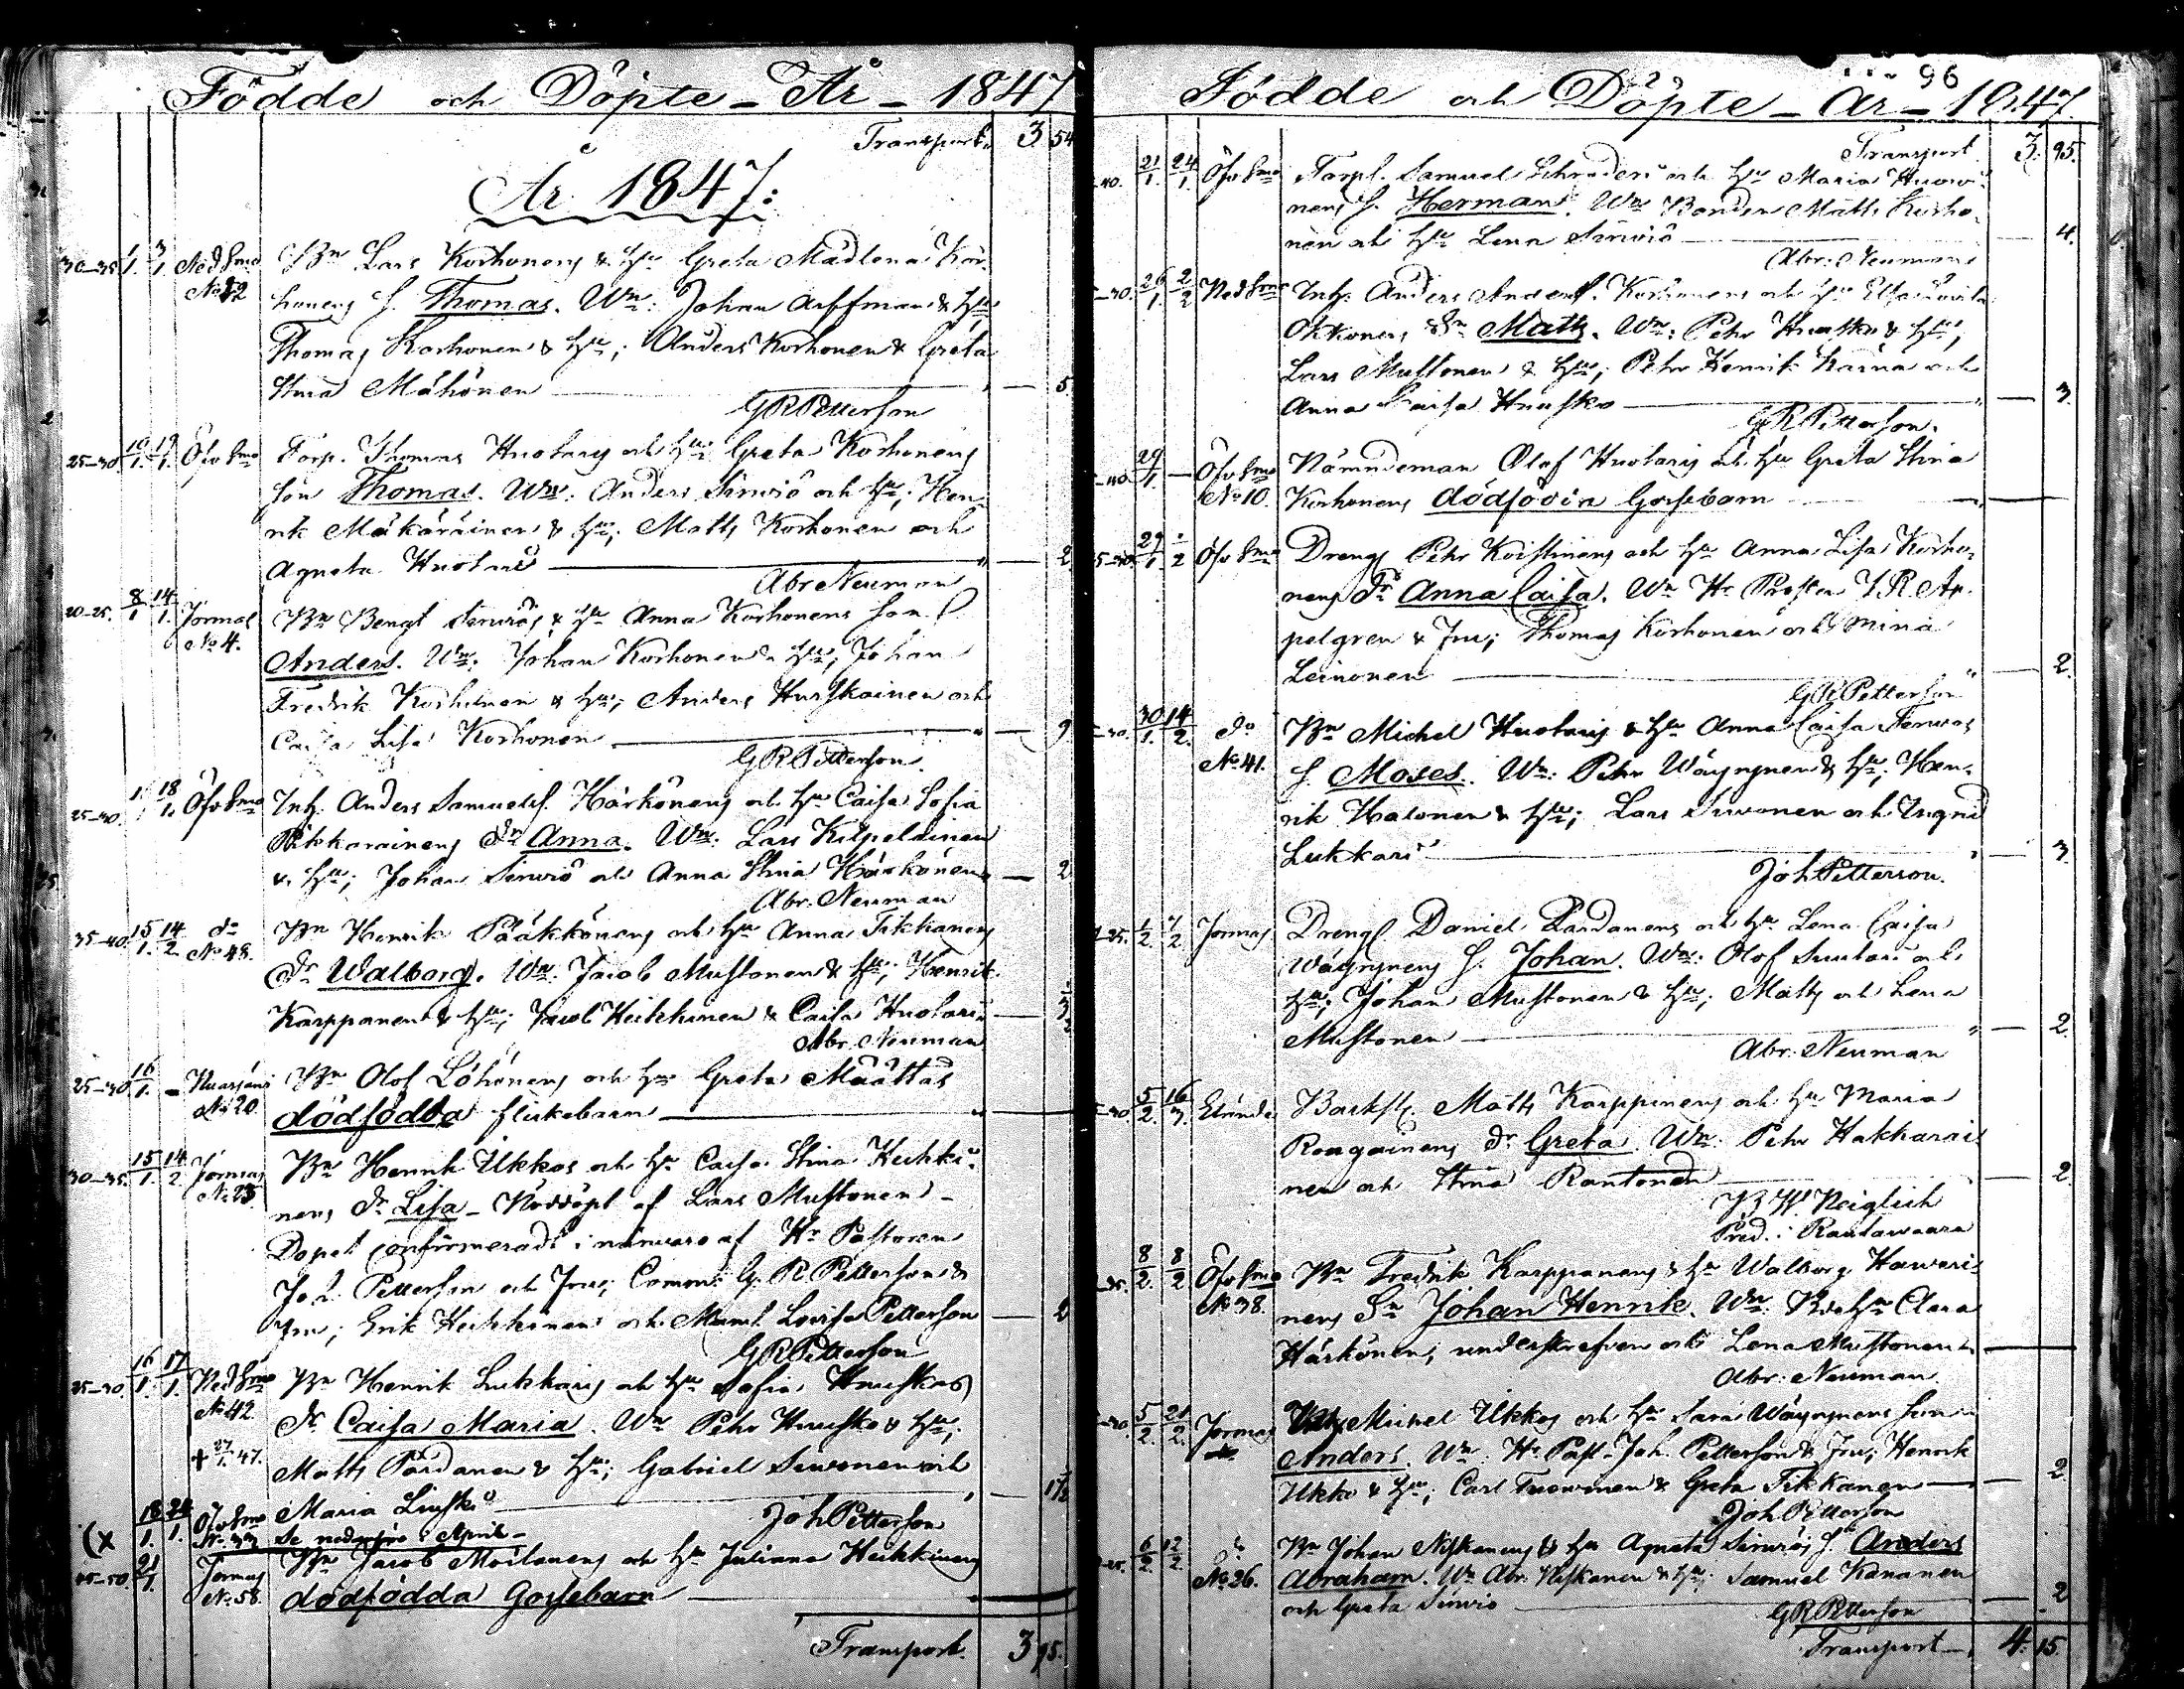 Födde och Döpte - År - 1847
Transport 3 54
År 1847:
30-35 1/1. 3/1 Ned Smo Bn Lars Korhonens & hu Greta Madlena Kor-
No 12 honens s. Thomas. Wn: Johan Arffman & hu;
Thomas Korhonen & hu; Anders Korhonen & Greta
Stina Mähönen 5.
GR Petterson
25-30 10/1. 17/1. Öfv Smo Torp. Thomas Huotarys och hu Greta Korhonens
son Thomas. Wn. Anders Sirwiö och hu; Hen-
rik Mäkäräinen & hu; Matts Korhonen och
Agneta Huotari 2
Abr Neuman
20-25. 8/1 14/1. Jormas Bn Bengt Sirwiös & hu Anna Korhonens son
No 4. Anders. Wn. Johan Korhonen & hu; Johan
Fredrik Korhonen & hu; Anders Hurskainen och
Caisa Lisa Korhonen 9
GR Petterson.
25-30. 18/1. Öfv Smo Inh. Anders Samuelss. Härkönens och hu Caisa Sofia
Pikkarainens dr Anna. Wn. Lars Kilpeläinen
& hu; Johan Sirwiö och Anna Stina Härkönen 2
Abr. Neuman
35-40. 15/1. 14/2. do Bn Henrik Pääkkönens och hu Anna Tikkanens
No 48. dr Walborg. Wn. Jacob Mustonen & hu; Henrik
Karppanen & hu; Jacob Heikkinen & Caisa Huotari
Abr. Neuman
25-30 16/1. - Bn Olof Löhönens och hu Greta Määttäs
No 20. dödfödda flickebarn
30-35. 15/1. 14/2. Jormas Bn Henrik Ukkos och hu Caisa Stina Heikki-
No 25. nens dr Lisa - Nöddöpt af Lars Mustonen -
Dopet confirmeradt i närwaro af Hr Pastoren
Joh. Petterson och Fru; Comon. G. R. Petterson &
Fru; Erik Heikkinen och Mamsl Lovisa Petterson 2
GR Petterson
25-30. 16/1. 17/1. Ned Smo Bn Henrik Lukkaris och hu Sofia Huuskos
No 42. dr Caisa Maria. Wn Pehr Huusko & hu;
+ 27/1 47. Matts Pardanen & hu; Gabriel Siwonen och
Maria 1 1/2
Joh Petterson
(x 18/1. 24/1. Öfv Smo
No 33 Se nedanföre i April -
45-50. 21/1 Jormas Bn Jacob Moilanens och hu Juliana Heikkinens
No 58. dödfödda Gossebarn
Transport. 3 95.
96
Födde och Döpte - År - 1847.
Transport 3. 95.
-40. 21/1. 24/1 Öfv Smo Torp. Samuel Schroderi och hu Maria Huowi-
nens s. Herman. Wn Bonden Matts Korho-
nen och hu Lena Sirwiö 4.
Abr. Neuman
-30. 26/1 2/2 Ned Smo Inh. Anders Anderss. Korhonens och hu Elsa Lovisa
Okkonens Sn Matts. Wn: Pehr Huusko & hu;
Lars Mustonen & hu; Pehr Henrik Kärnä och
Anna Caisa Huusko 3.
GR Petterson.
-40. 29/1 - Öfv Smo Nämndeman Olof Huotaris och hu Greta Stina
No 10. Korhonens dödfödda Gossebarn
29/1. Öfv Smo Drengs Pehr Koistinens och hu Anna Lisa Korho-
nens dr Anna Caisa. Wn Hr Prosten J. R. Ap-
pelgren & Fru; Thomas Korhonen och Mina
Leinonen 2.
GR Petterson
-30. 30/1. 14/2. do Bn Michel Huotaris & hu Anna Caisa Sirwiös
No 41. s. Moses. Wn: Pehr Wäyrynen & hu; Hen-
rik Halonen & hu; Lars Siwonen och Ingrid
Lukkari 3
Joh Petterson.
-25. 1/2. 7/2 Jormas Drengs Daniel Pardanens och hu Lena Caisa
Wäyrynens s. Johan. Wn: Olof Suutari och
hu; Johan Mustonen & hu; Matts och Lena
Mustonen 2.
Abr. Neuman
-30. 5/2. 16/3. Matts Karppinens och hu Maria
dr Greta. Wn Pehr Hakkarai-
nen och Stina Rantonen 2.
Neiglich
Pred. i Rautawaara
8/2. 8/2 Öfv Smo Bn Fredrik Karppanens & hu Walborg Haweri-
No 38. nens Sn Johan Henrik. Wn. Clara
Härkönen; underskrefven och Lena Mustonen
Abr. Neuman.
-30. 5/2. 21/2. Jormas Michel Ukkos och hu Sara Wäyrynens son
Anders. Wn. Hr Past. Joh. Petterson & Fru; Henrik
Ukko & hu; Carl Tuowinen & Greta Tikkanen 2
Joh Petterson
-25. 6/2. 12/2. Bn Johan Niskanens & hu Agneta Sirwiös s. Anders
No 26. Abraham. Wn Abr. Niskanen & hu; Samuel Kananen
och Greta Sirwiö 2
GR Petterson
Transport 4. 15.